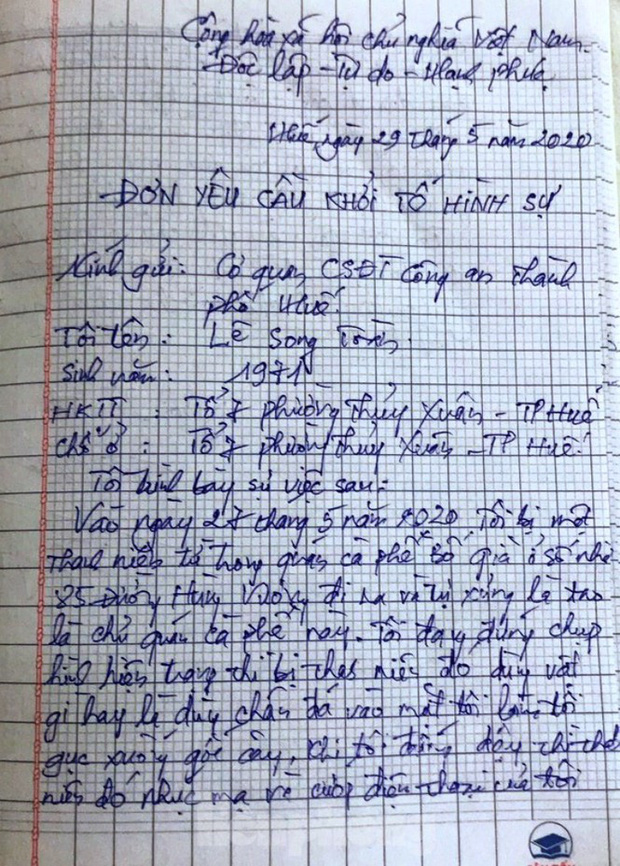 Cộng hòa xã hội chủ nghĩa Việt Nam
Độc lập - Tự do - Hạnh phúc
Huế, ngày 29 tháng 5 năm 2020
ĐƠN YÊU CẦU KHỞI TỐ HÌNH SỰ
Kính gửi: Cơ quan CSĐT Công an thành
phố Huế.
Tôi tên: Lê Song
Sinh năm: 1971
HKTT: Tổ 7 phường Thủy Xuân - TP Huế
Chỗ ở: Tổ 7 phường Thủy Xuân - TP Huế.
Tôi trình bày sự việc sau:
Vào ngày 27 tháng 5 năm 2020, Tôi bị một
thanh niên từ trong quán cà phê Bố già ở số nhà
85 Đường Hùng Vương đi ra và tự xưng là tao
là chủ quán cà phê này. Tôi đang đứng chụp
hình hiện trạng thì bị thanh niên đó dùng vật
gì hay là dùng chân đá vào mắt tôi làm tôi
gục xuống gốc cây, khi tôi đứng dậy thì thanh
niên đó nhục mạ và cướp điện thoại của tôi